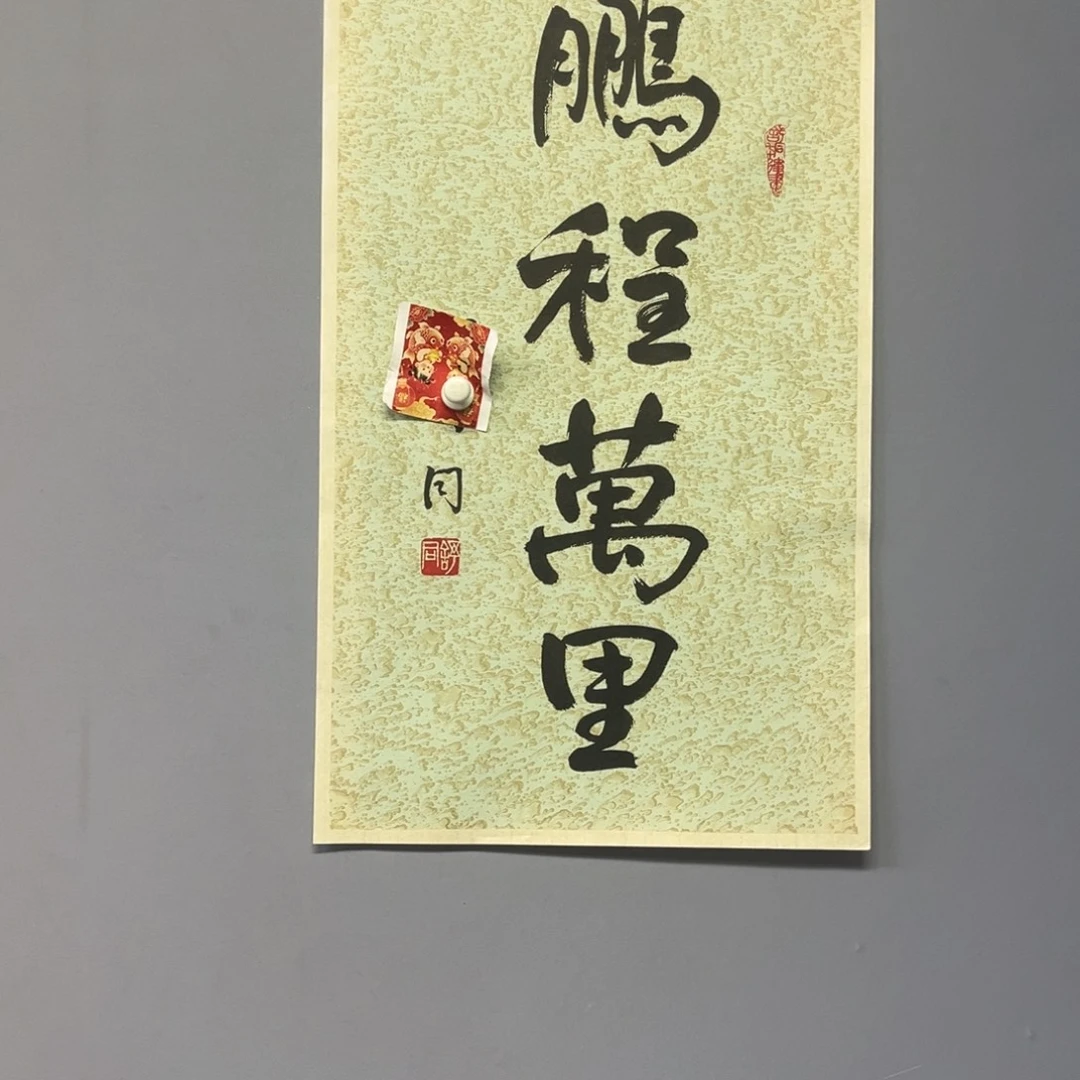 鵬程萬里
同